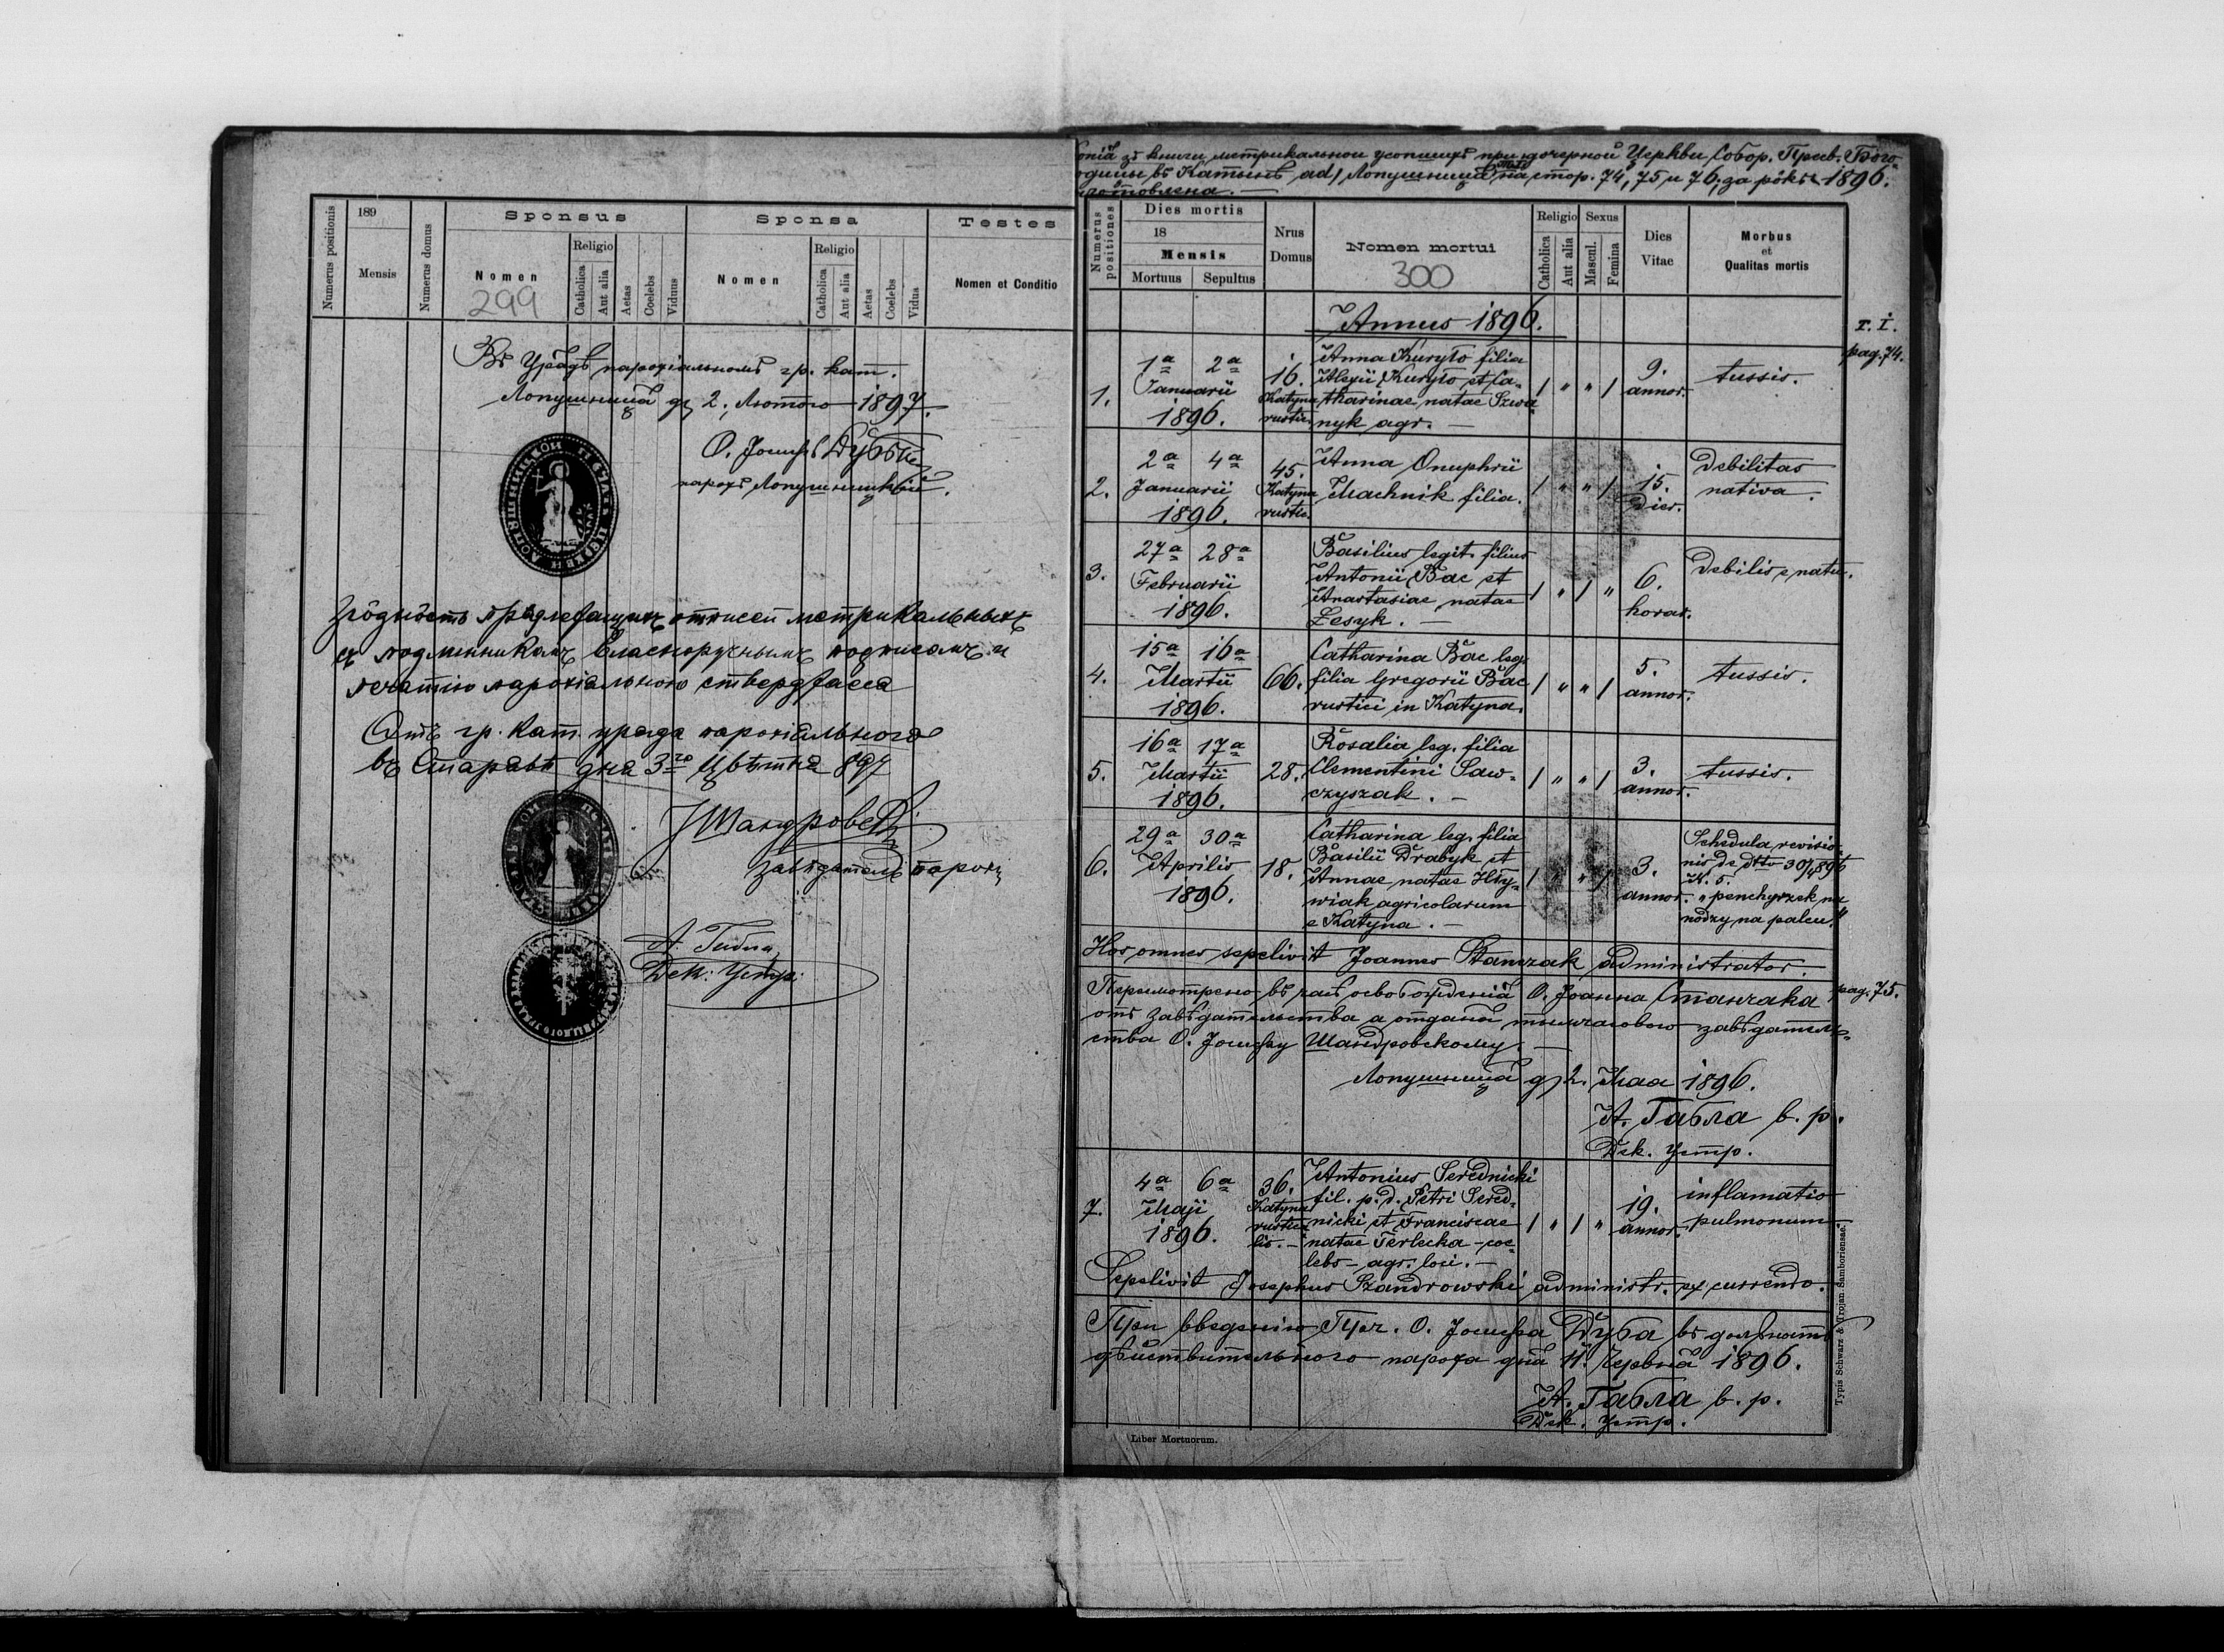 Numerus positionis
189
Mensis
Numerus domus
Sponsus
Nomen
299
Religio
Catholica
Aut alia
Aetas
Coelebs
Viduus
Sponsa
Nomen
Religio
Catholica
Aut alia
Aetas
Coelebs
Vidus
Testes
Nomen et Conditio
Въ Урядѣ парохіальномъ гр. кат.
Лопушница д. 2. Лютого 1897.
О. Іосифъ Дуб
парохъ Лопушницкій.
Згôдность предлежащихъ отписей метрикальныхъ
съ подлинникомъ власноручнымъ подписомъ и
печатію парохіального стверджаеся
Отъ гр. кат. уряда парохіального
въ Старявѣ дня 3го Цвѣтня 897
ІШандровскій
завѣдатель парохіи
А. Габла
Дек. Устр.
зъ книги метрикальнои усопшихъ при дочерной Церкви Собор. Пресв. Бого-
родицы въ Катынѣ ad/ Лопушница на стор. 74, 75 и 76, за рôкъ 1896.
Numerus positiones
Dies mortis
18
Mensis
Mortuus
Sepultus
Nrus
Domus
Nomen mortui
300
Religio
Catholica
Aut alia
Sexus
Mascul.
Femina
Dies
Vitae
Morbus
et
Qualitas mortis
Annus 1896.
T. I.
pag. 74.
1.
1a 2a
Januarii
1896.
16.
Katyna
rustic.
Anna Kuryło filia
Alexii Kuryło et Ca-
tharinae natae Szwa-
nyk agr. —
/ " " /
9.
annor.
tussis.
2.
2a 4a
Januarii
1896.
45.
Katyna
rustic.
Anna Onuphrii
Machnik filia.
/ " " /
15.
Dier.
Debilitas
nativa.
3.
27a 28a
Februarii
1896.
Basilius legit. filius
Antonii Bac et
Anastasiae natae
Lesyk. —
/ " / "
6.
horar.
Debilis e natu.
4.
15a 16a
Martii
1896.
66.
Catharina Bac leg.
filia Gregorii Bac
rustici in Katyna.
/ " " /
5.
annor.
tussis.
5.
16a 17a
Martii
1896.
28.
Rosalia leg. filia
Clementini Saw-
czyszak. —
/ " " /
3.
annor.
tussis.
6.
29a 30a
Aprilis
1896.
18.
Catharina leg. filia
Basilii Drabyk et
Annae natae Hły-
wiak agricolarum
e Katyna. —
/ " " /
3.
annor.
Schedula revisio-
nis de dtto 30/4 896
N. 5.
" penchyrzek na
nodzy na palcu."
Hos omnes sepelivit Joannes Stanczak administrator.
Пересмотрено въ часѣ освобожденія О. Іоанна Станчака
отъ завѣдательства а отданя тымчасового завѣдатель-
ства О. Іосифу Шандровскому. —
pag. 75.
Лопушница д. 2. Мая 1896.
А. Габла в. р.
Дек. Устр.
7.
4a 6a
Maji
1896.
36.
Katyna
Antonius Serednicki
fil. p.d. Petri Sered-
nicki et Franciscae
natae Terlecka – coe-
lebs – agr. loci. —
/ " / "
19.
annor.
inflamatio
pulmonum
Sepelivit Josephus Szandrowski administr. ex currendo.
При введенію Преч. О. Іосифа Дуба въ должность
дѣйствительного пароха дня 11. Червня 1896.
А. Габла в. р.
Дек. Устр.
Liber Mortuorum.
Typis Schwarz & Trojan Samboriensae.